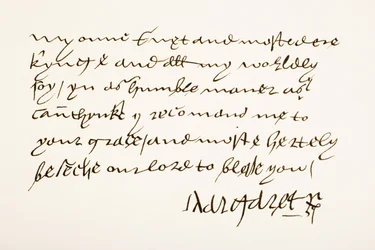 my oune suet and most dere
kynge and all my worldly
joy / yn as humble maner as y
can thynke y recomand me to
your grace / and moste hertely
beseche our lord to blesse you /
Margaret R